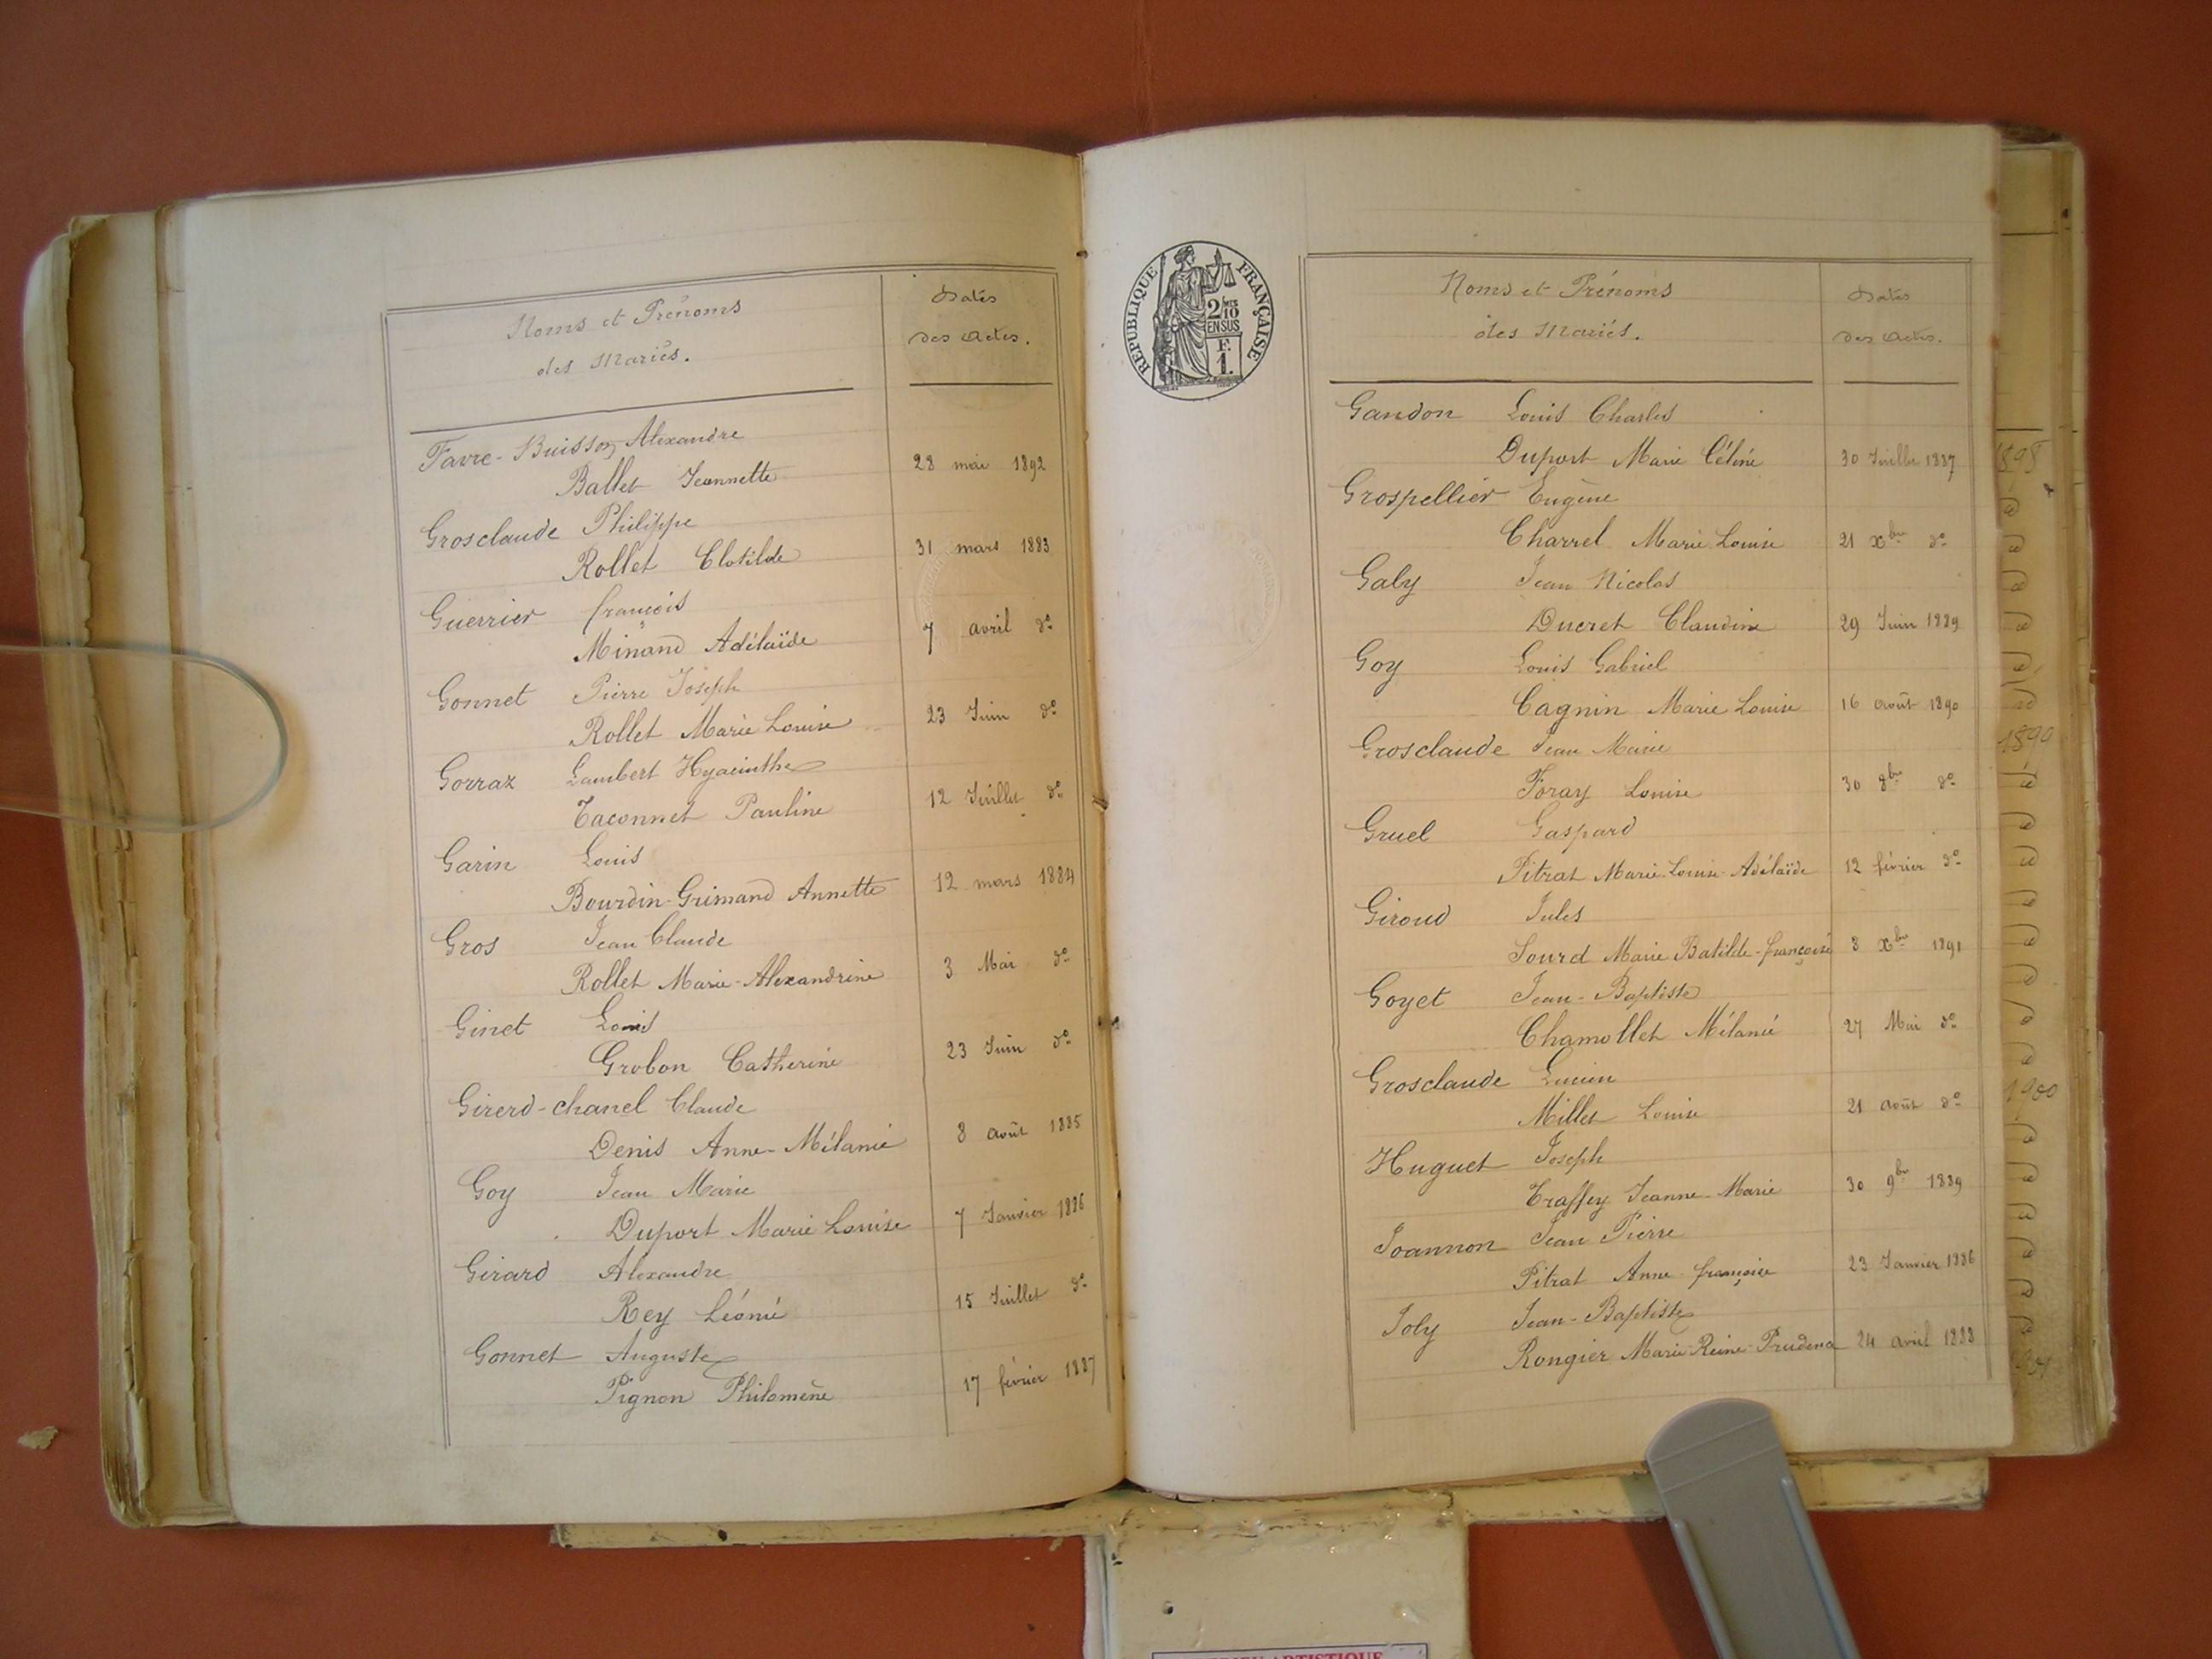 Noms et Prénoms
des Mariés.
Dates
des Actes.
Favre-Buisson Alexandre
Ballet Jeannette 28 mai 1892
Grosclaude Philippe
Rollet Clotilde 31 mars 1883
Guerrier françois
Minand Adélaïde 7 avril do
Gonnet Pierre Joseph
Rollet Marie Louise 23 Juin do
Gorraz Lambert Hyacinthe
Taconnet Pauline 12 Juillet do
Garin Louis
Bourdin-Grimand Annette 12 mars 1884
Gros Jean Claude
Rollet Marie-Alexandrine 3 Mai do
Ginet Louis
Grobon Catherine 23 Juin do
Girerd-chanel Claude
Denis Anne-Mélanie 8 août 1885
Goy Jean Marie
Duport Marie Louise 7 Janvier 1886
Girard Alexandre
Rey Léonie 15 Juillet do
Gonnet Auguste
Pignon Philomène 17 février 1887
RÉPUBLIQUE FRANÇAISE
2/10MES
EN SUS
F.
1.
Noms et Prénoms
des Mariés.
Dates
des Actes.
Gandon Louis Charles
Duport Marie Céline 30 Juillet 1887
Grospellier Eugène
Charrel Marie Louise 21 Xbre do
Galy Jean Nicolas
Ducret Claudine 29 Juin 1889
Goy Louis Gabriel
Cagnin Marie Louise 16 août 1890
Grosclaude Jean Marie
Foray Louise 30 8bre do
Gruel Gaspard
Pitrat Marie-Louise-Adélaïde 12 février do
Giroud Jules
Sourd Marie Batilde-françoise 8 Xbre 1891
Goyet Jean-Baptiste
Chamollet Mélanie 27 Mai do
Grosclaude Lucien
Millet Louise 21 août do
Huguet Joseph
Traffey Jeanne-Marie 30 9bre 1889
Joannon Jean Pierre
Pitrat Anne françoise 23 Janvier 1886
Joly Jean-Baptiste
Rongier Marie-Reine-Prudence 24 avril 1888
1898
1899
1900